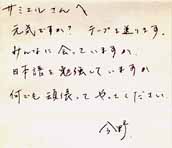 サミエルさんへ
元気ですか? テープを送ります。
みんなに会っていますか。
日本語を勉強していますか
何でも頑張ってやってください
今野